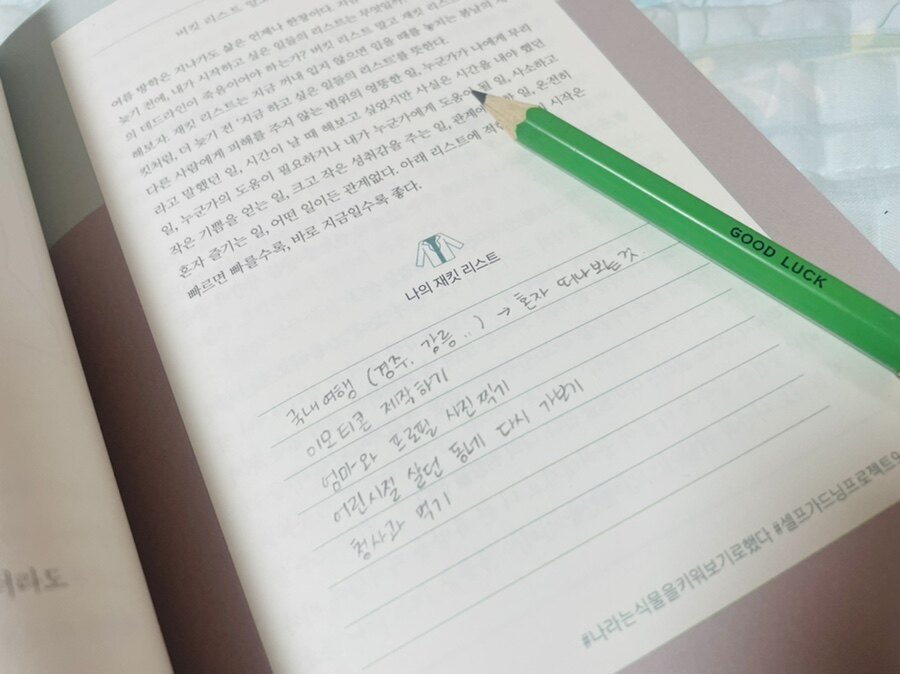 버킷 리스트 말고
여름 방학은 지나가도 삶은 언제나 한창이다. 지금
늦기 전에, 내가 시작하고 싶은 일들의 리스트는 무엇일까
의 데드라인이 죽음이어야 하는가? 버킷 리스트 말고 재킷 리스트
해보자. 재킷 리스트는 지금 꺼내 입지 않으면 입을 때를 놓치는 봄날의 재
킷처럼, 더 늦기 전 '지금 하고 싶은 일들의 리스트'를 뜻한다.
다른 사람에게 피해를 주지 않는 범위의 엉뚱한 일, 누군가가 나에게 무리
라고 말했던 일, 시간이 날 때 해보고 싶었지만 사실은 시간을 내야 했던
일, 누군가의 도움이 필요하거나 내가 누군가에게 도움이 될 일, 사소하고
작은 기쁨을 얻는 일, 크고 작은 성취감을 주는 일, 관계에 일, 온전히
혼자 즐기는 일, 어떤 일이든 관계없다. 아래 리스트에 시작은
빠르면 빠를수록, 바로 지금일수록 좋다.
나의 재킷 리스트
국내여행 (경주, 강릉..) → 혼자 떠나보는것.
이모티콘 제작하기
엄마와 프로필 사진찍기
어린시절 살던 동네 다시 가보기
청사과 먹기
#나라는식물을키워보기로했다 #셀프가드닝프로젝트
GOOD LUCK